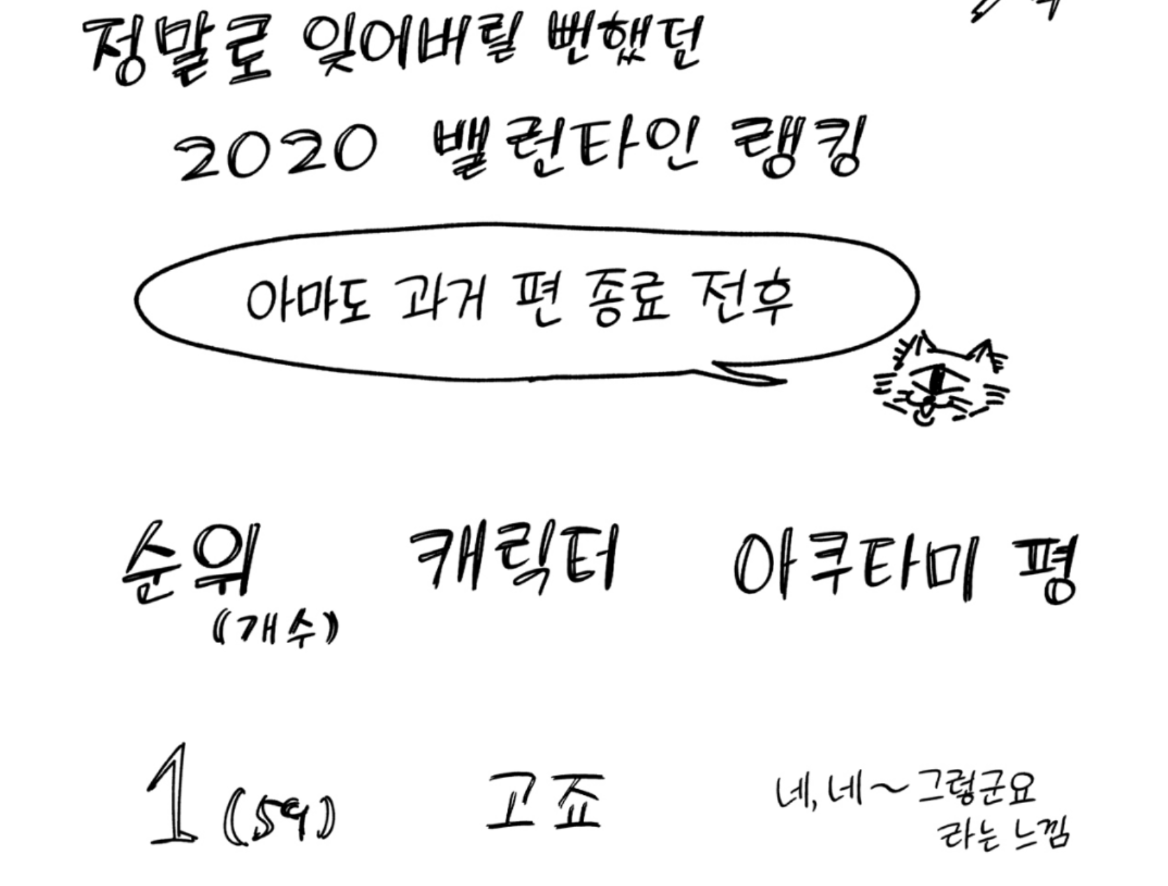 정말로 잊어버릴 뻔했던
2020 밸런타인 랭킹
아마도 과거 편 종료 전후
순위 캐릭터 아쿠타미 평
(개수)
1 (59) 고죠 네, 네~ 그렇군요
라는 느낌